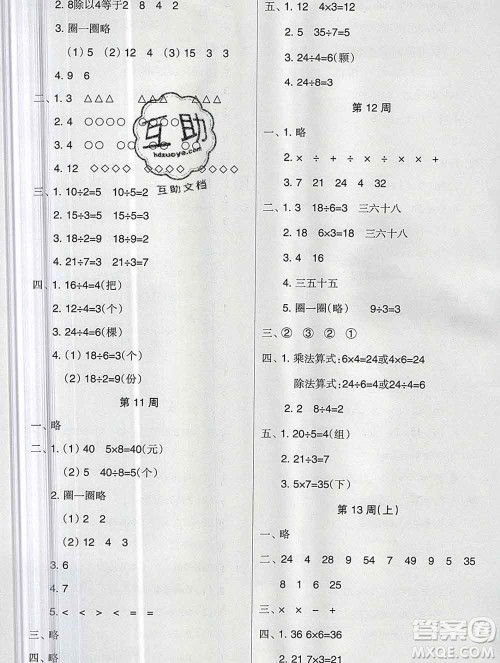 2. 8除以4等于2
3. 圈一圈略
(1) 5 (2) 15 2 4 3
4. 9 6
二、1. 3 △△△
2. 4 ○○○
3. 4
4. 12 ◇◇◇◇
三、1. 10÷2=5 10÷5=2
2. 15÷5=3 15÷3=5
3. 18÷2=9 18÷9=2
4. 21÷7=3 21÷3=7
四、1. 16÷4=4(把)
2. 12÷4=3(个)
3. 24÷4=6(棵)
4. (1) 18÷6=3(个)
(2) 18÷2=9(份)
第 11 周
一、略
二、1. (1) 40 5×8=40(元)
(2) 5 40÷8=5(个)
2. 圈一圈略
(1) 2 2
(2) 12 4 3
3. 6
4. 7
5. < < < < = =
三、略
四、略
互助
hdzuoye.com
互助文档
五、1. 12 4×3=12
2. 5 35÷7=5
3. 24÷4=6(颗)
第 12 周
一、1. 略
2. × ÷ + ÷ × − × +
3. 15 7 8 4
二、1. 3 18÷6=3 三六十八
2. 6 6×3=18 三六十八
3. 21÷7=3
4. 三五十五
5. 圈一圈(略) 9÷3=3
三、② ③ ② ①
四、1. 乘法算式：6×4=24或4×6=24
除法算式：24÷6=4或24÷4=6
2. 2 8
五、1. 20÷5=4(组)
2. 21÷7=3
3. 5×7=35(下)
第 13 周(上)
一、略
二、24 4 28 9 54 7 49 9 5 35
8 1 25 6
三、× ÷ × ÷ ÷ ×
四、1. 36 6×6=36
答案圈
MXQE.COM